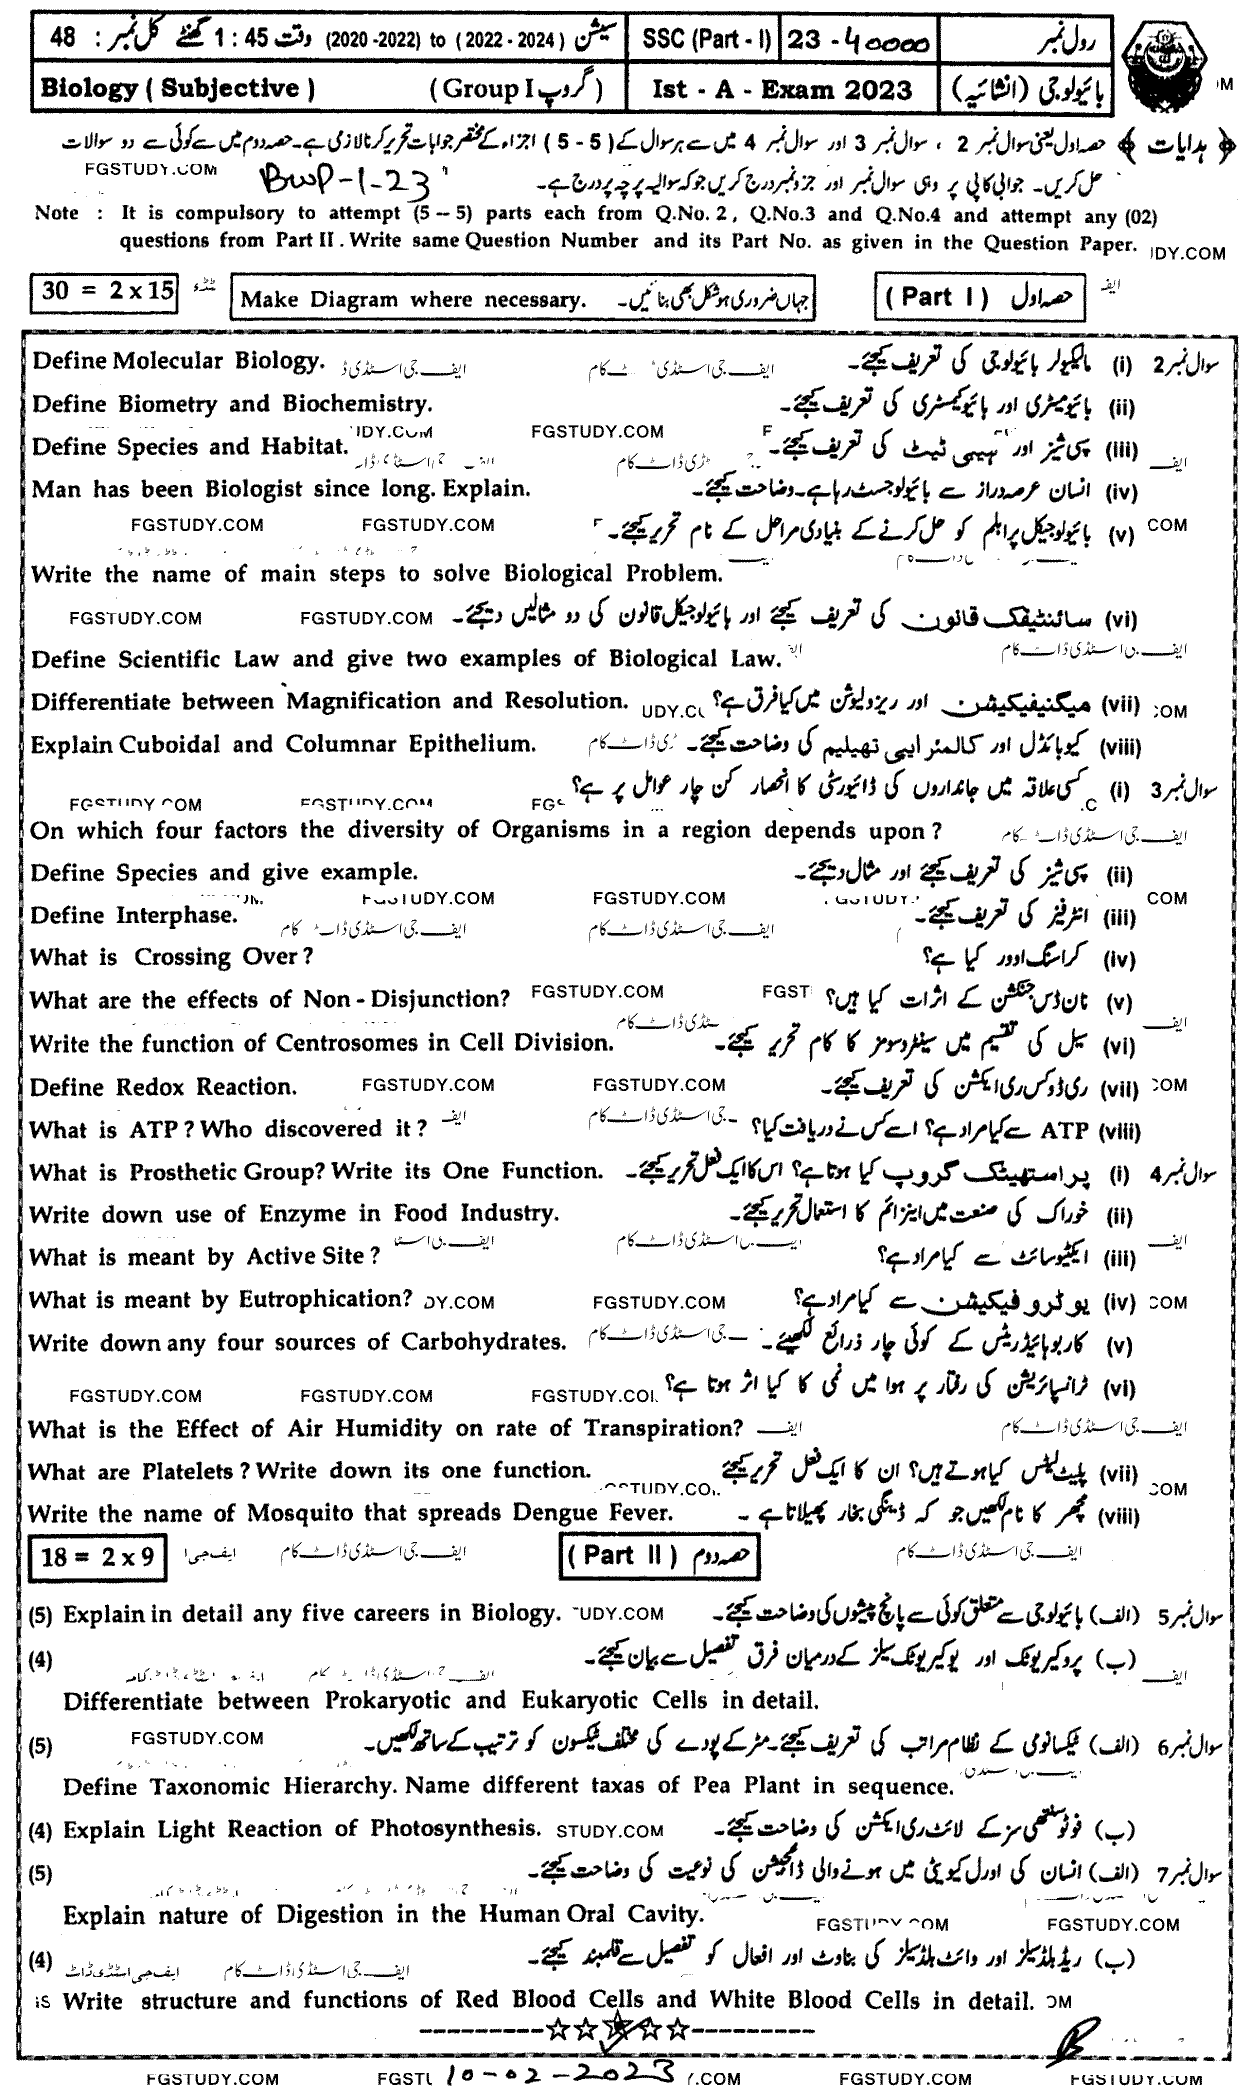 رول نمبر 23 - 40000 SSC (Part - I) سیشن (2020 -2022) to (2022 - 2024) وقت 1 : 45 گھنٹے کل نمبر : 48
بائیولوجی (انشائیہ) Ist - A - Exam 2023 (Group I گروپ) Biology ( Subjective )
﴿ ہدایات ﴾ حصہ اول یعنی سوال نمبر 2 ، سوال نمبر 3 اور سوال نمبر 4 میں سے ہر سوال کے ( 5 - 5 ) اجزاء کے مختصر جوابات تحریر کرنا لازمی ہے۔ حصہ دوم میں سے کوئی سے دو سوالات
حل کریں۔ جوابی کاپی پر وہی سوال نمبر اور جز نمبر درج کریں جو کہ سوالیہ پرچہ پر درج ہے۔ BWP-1-23 FGSTUDY.COM
Note : It is compulsory to attempt (5 – 5) parts each from Q.No. 2 , Q.No.3 and Q.No.4 and attempt any (02)
questions from Part II . Write same Question Number and its Part No. as given in the Question Paper.
30 = 2 x 15 Make Diagram where necessary. جہاں ضروری ہو شکل بھی بنائیں۔ ( Part I ) حصہ اول
Define Molecular Biology. سوال نمبر 2 (i) مالیکیولر بائیولوجی کی تعریف کیجئے۔
Define Biometry and Biochemistry. (ii) بائیومیٹری اور بائیوکیمسٹری کی تعریف کیجئے۔
FGSTUDY.COM
Define Species and Habitat. (iii) سپی شیز اور ہیبی ٹیٹ کی تعریف کیجئے۔
Man has been Biologist since long. Explain. (iv) انسان عرصہ دراز سے بائیولوجسٹ رہا ہے۔ وضاحت کیجئے۔
FGSTUDY.COM FGSTUDY.COM (v) بائیولوجیکل پرابلم کو حل کرنے کے بنیادی مراحل کے نام تحریر کیجئے۔
Write the name of main steps to solve Biological Problem.
FGSTUDY.COM FGSTUDY.COM (vi) سائنٹیفک قانون کی تعریف کیجئے اور بائیولوجیکل قانون کی دو مثالیں دیجئے۔
Define Scientific Law and give two examples of Biological Law.
Differentiate between Magnification and Resolution. (vii) میگنیفیکیشن اور ریزولیوشن میں کیا فرق ہے؟
Explain Cuboidal and Columnar Epithelium. (viii) کیوبائڈل اور کالمنر ایپی تھیلیم کی وضاحت کیجئے۔
سوال نمبر 3 (i) کسی علاقہ میں جانداروں کی ڈائیورسٹی کا انحصار کن چار عوامل پر ہے؟
On which four factors the diversity of Organisms in a region depends upon ?
Define Species and give example. (ii) سپی شیز کی تعریف کیجئے اور مثال دیجئے۔
FGSTUDY.COM
Define Interphase. (iii) انٹرفیز کی تعریف کیجئے۔
What is Crossing Over ? (iv) کراسنگ اوور کیا ہے؟
What are the effects of Non - Disjunction? FGSTUDY.COM (v) نان ڈس جنکشن کے اثرات کیا ہیں؟
Write the function of Centrosomes in Cell Division. (vi) سیل کی تقسیم میں سینٹروسومز کا کام تحریر کیجئے۔
Define Redox Reaction. FGSTUDY.COM FGSTUDY.COM (vii) ری ڈوکس ری ایکشن کی تعریف کیجئے۔
What is ATP ? Who discovered it ? (viii) ATP سے کیا مراد ہے؟ اسے کس نے دریافت کیا؟
What is Prosthetic Group? Write its One Function. سوال نمبر 4 (i) پراستھیٹک گروپ کیا ہوتا ہے؟ اس کا ایک فعل تحریر کیجئے۔
Write down use of Enzyme in Food Industry. (ii) خوراک کی صنعت میں اینزائم کا استعمال تحریر کیجئے۔
What is meant by Active Site ? (iii) ایکٹیو سائٹ سے کیا مراد ہے؟
What is meant by Eutrophication? FGSTUDY.COM (iv) یوٹروفیکیشن سے کیا مراد ہے؟
Write down any four sources of Carbohydrates. (v) کاربوہائیڈریٹس کے کوئی چار ذرائع لکھیئے۔
FGSTUDY.COM FGSTUDY.COM (vi) ٹرانسپائریشن کی رفتار پر ہوا میں نمی کا کیا اثر ہوتا ہے؟
What is the Effect of Air Humidity on rate of Transpiration?
What are Platelets ? Write down its one function. (vii) پلیٹ لیٹس کیا ہوتے ہیں؟ ان کا ایک فعل تحریر کیجئے
Write the name of Mosquito that spreads Dengue Fever. (viii) مچھر کا نام لکھیں جو کہ ڈینگی بخار پھیلاتا ہے ۔
18 = 2 x 9 ( Part II ) حصہ دوم
(5) Explain in detail any five careers in Biology. سوال نمبر 5 (الف) بائیولوجی سے متعلق کوئی سے پانچ پیشوں کی وضاحت کیجئے۔
(4) (ب) پروکیریوٹک اور یوکیریوٹک سیلز کے درمیان فرق تفصیل سے بیان کیجئے۔
Differentiate between Prokaryotic and Eukaryotic Cells in detail.
(5) FGSTUDY.COM سوال نمبر 6 (الف) ٹیکسانومی کے نظام مراتب کی تعریف کیجئے۔ مٹر کے پودے کی مختلف ٹیکسون کو ترتیب کے ساتھ لکھیں۔
Define Taxonomic Hierarchy. Name different taxas of Pea Plant in sequence.
(4) Explain Light Reaction of Photosynthesis. (ب) فوٹو سنتھی سز کے لائٹ ری ایکشن کی وضاحت کیجئے۔
(5) سوال نمبر 7 (الف) انسان کی اورل کیویٹی میں ہونے والی ڈائجیشن کی نوعیت کی وضاحت کیجئے۔
Explain nature of Digestion in the Human Oral Cavity. FGSTUDY.COM
(4) (ب) ریڈ بلڈ سیلز اور وائٹ بلڈ سیلز کی بناوٹ اور افعال کو تفصیل سے قلمبند کیجئے۔
Write structure and functions of Red Blood Cells and White Blood Cells in detail.
---------☆☆☆☆☆---------
FGSTUDY.COM 10-02-2023 FGSTUDY.COM FGSTUDY.COM